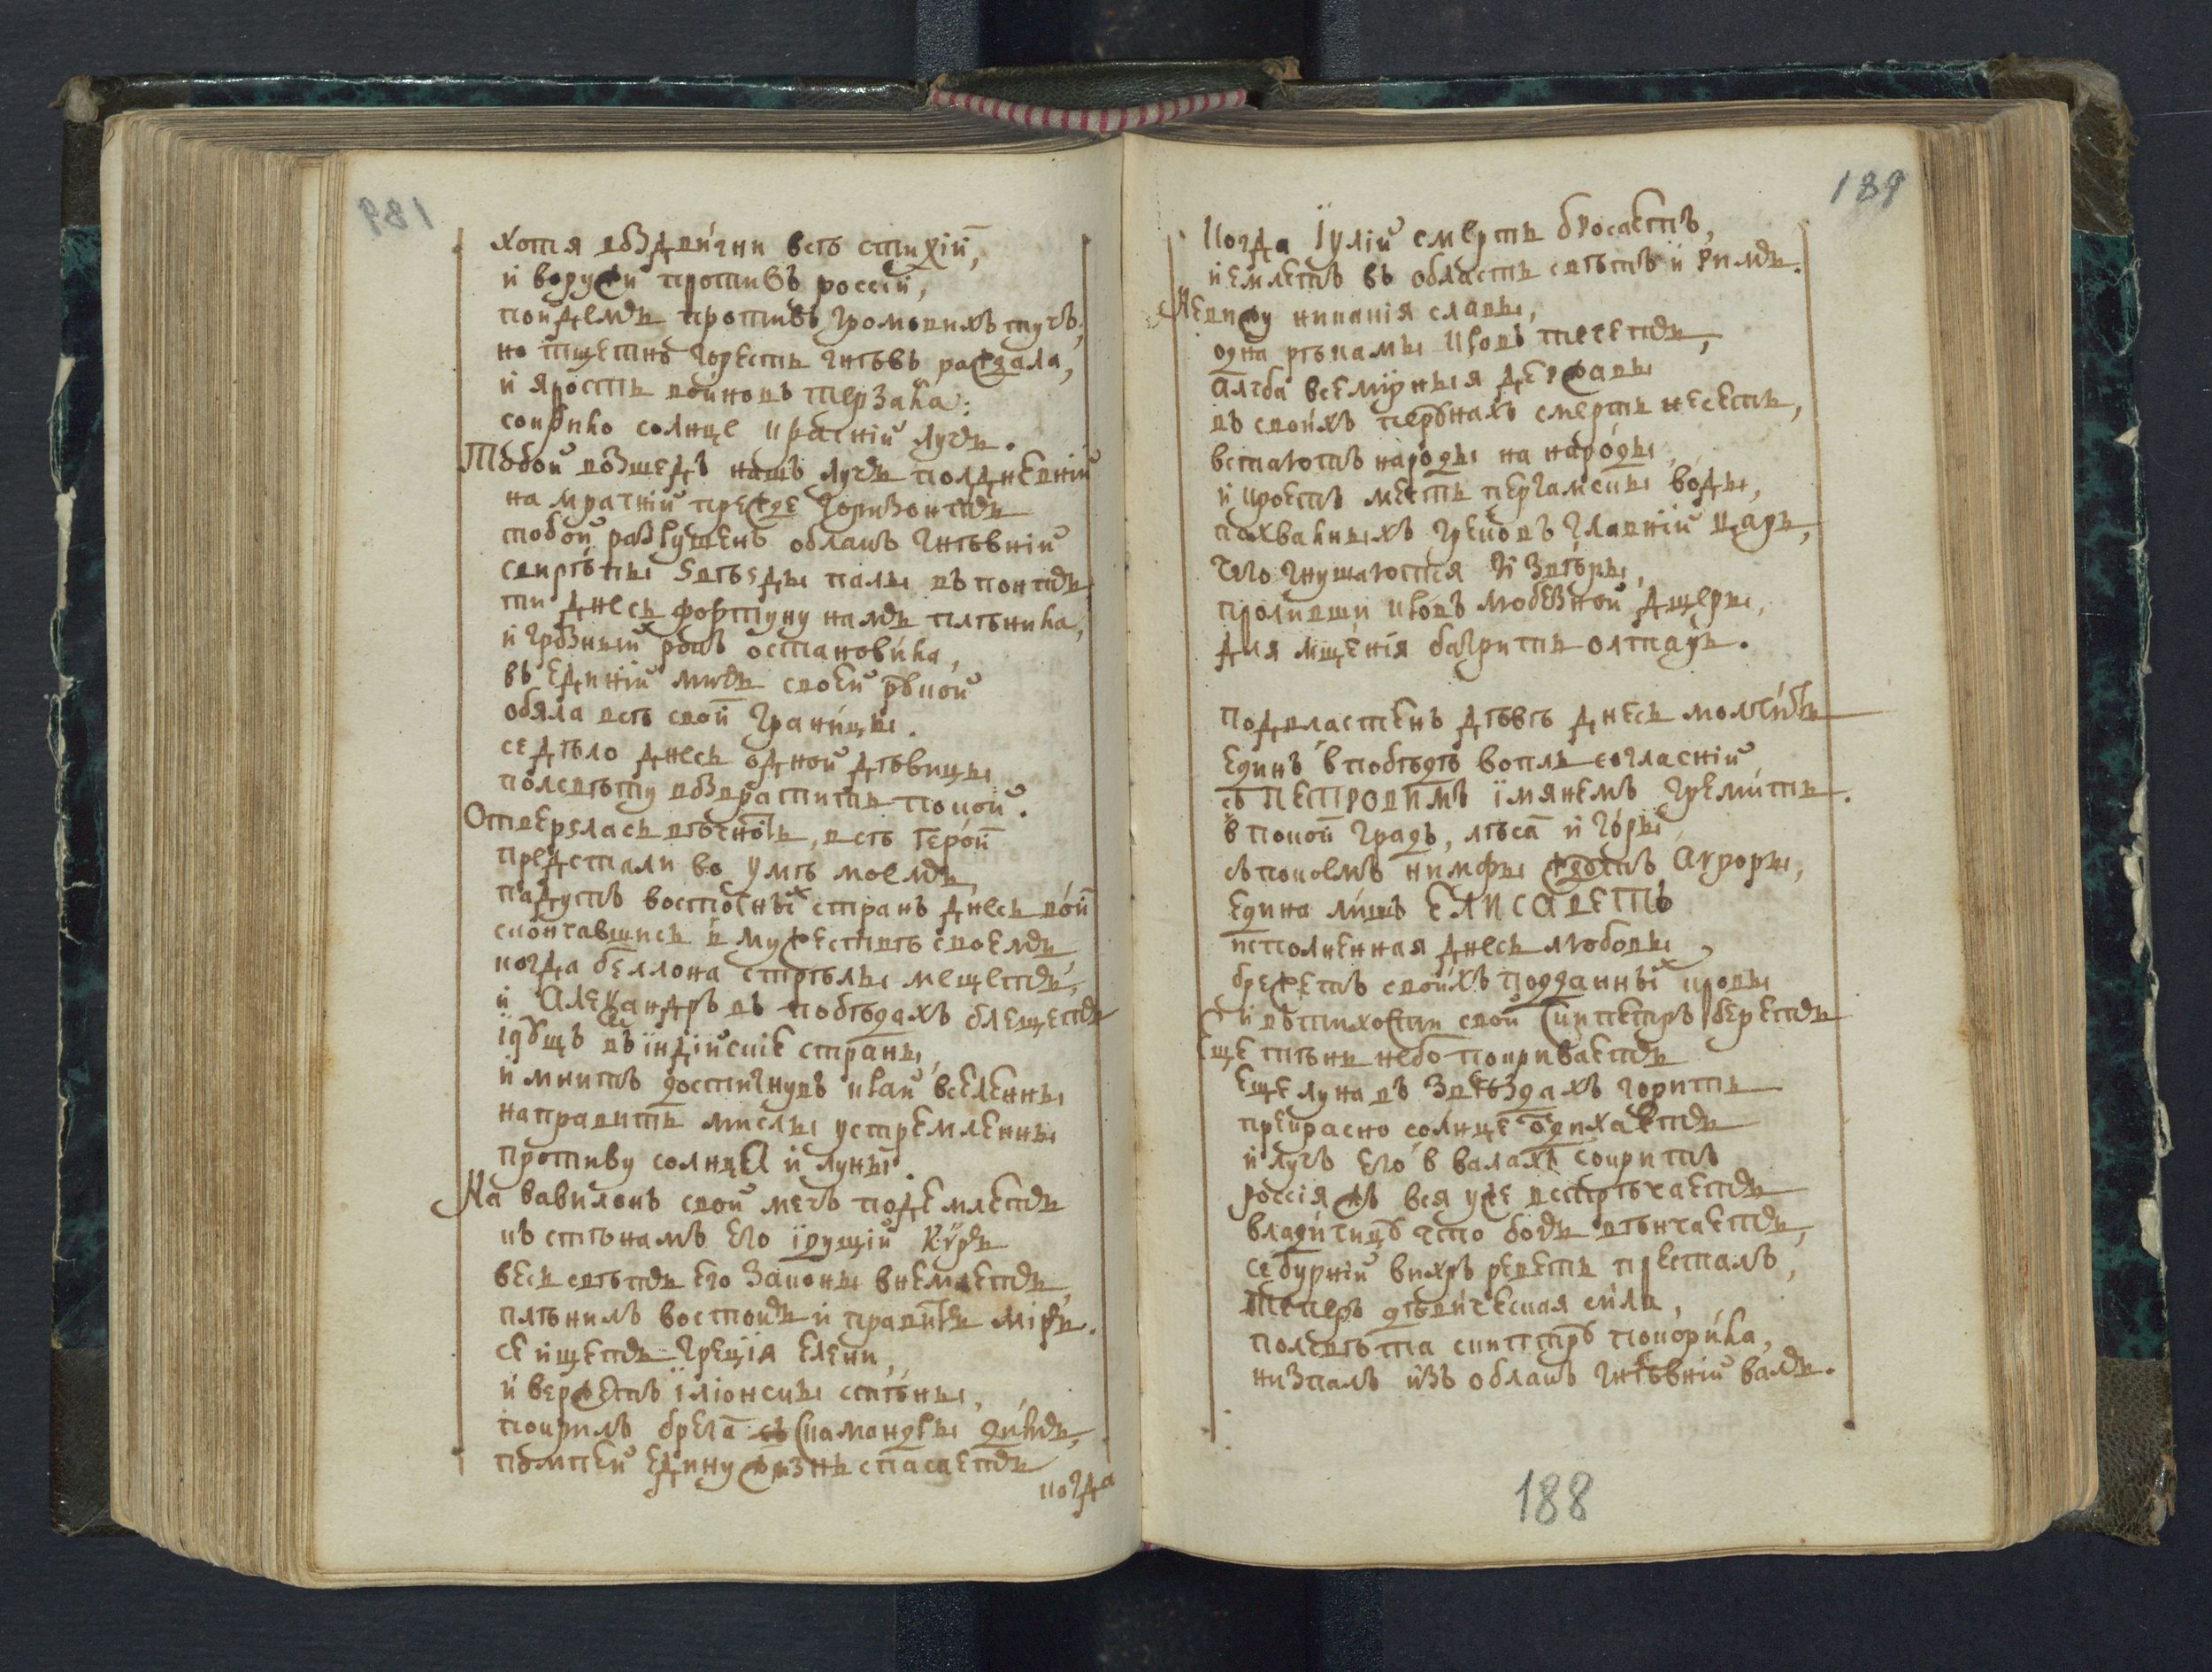 хотя воздвигни всѣ стихій,
и воружи противъ россіи,
пойдемъ противъ громовихъ тучъ,
но тщетнѡ горесть гнѣвъ раждала,
и ярость войновъ терзала:
сокрило солнце красній лучь.
Тобой возшедъ нашъ лучь полдневній
на мрачній прежде горизонтъ
тобой разрушенъ облакъ гнѣвній
свирѣпы ѕвѣѕды палы въ понтъ
ти днесь фортуну намъ плѣнила,
и грозный рокъ остановила,
въ единій мигъ своей рукой
обяла всѣ свои границы.
се дѣло днесь одной дѣвицы
полсвѣту возвратить покой.
Отверзлась вѣчность, всѣ герои
предстали во умѣ моемъ,
падутъ восточных странъ днесь вои
скончавшись в мужествѣ своемъ
когда беллона стрѣлы мещетъ,
и Александръ въ побѣдахъ блещетъ
їдущъ въ їндїйскіе страны,
и мнитъ достигнувъ край вселенны
направить мислы устремленны
противу солнца и луны.
На вавилонъ свой мечъ подемлетъ
къ стѣнамъ его їдущій Кѵръ
весь свѣтъ его законы внемлетъ
плѣнилъ востокъ и правитъ міръ.
се ищетъ греція елени,
и вержетъ їліонскы стѣны,
покрилъ брега скамандры димъ,
помпей едину жизнь спасаетъ
когда
189
Когда Їулій смерть бросаетъ,
и емлетъ въ область свѣтъ и римъ.
Невижу никакія славы,
одна рѣкамы кровь течетъ,
алчба всемирныя державы
въ своихъ перунахъ смерть несетъ,
встаютъ народы на народы,
и кроетъ месть пергамскы воды,
похвалныхъ грековъ главній царь,
чего гнушаются и звѣры,
проливши кровъ любезной дщеры,
для мщенія багритъ олтарь.
подвластенъ дѣвѣ днесь молчитъ
единъ в побѣдѣ вопль согласній
съ ПЕТРОВИМЪ їмянемъ гремитъ.
в покои градъ, лѣса и горы
съ покоемъ нимфы ждутъ Ауроры,
едина лишъ ЕЛИСАВЕТЪ
исполненная днесь любовы
брежетъ своихъ подданных кровы
и въ тихости свой скипетръ беретъ
Еще плѣнь небо покриваетъ
еще луна въ звѣздахъ горитъ
прекрасно солнце одихаетъ
и лучъ его в валахъ сокритъ
россія жъ вся уже встрѣчаетъ
владичицу что богъ вѣнчаетъ,
се бурній вихръ реветь престалъ,
теперь дѣвическая сила,
полсвѣта скиптръ покорила,
низпалъ изъ облакъ гнѣвній валъ.
188
189